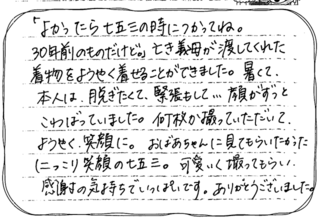 「よかったら七五三の時につかってね。
30年前のものだけど。」亡き義母が渡してくれた
着物をようやく着せることができました。暑くて、
本人は、脱ぎたくて、緊張もして…顔がずっと
こわばっていました。何枚か撮っていただいて、
ようやく笑顔に。おばあちゃんに見てもらいたかった
にっこり笑顔の七五三。可愛いく撮ってもらい
感謝の気持ちでいっぱいです。ありがとうございました。